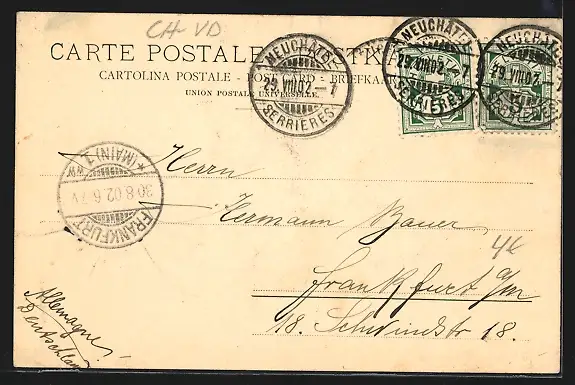 CH-VD
CARTE POSTALE
CARTOLINA POSTALE - POST CARD - BRIEFKAART
UNION POSTALE UNIVERSELLE
NEUCHÂTEL
29.VIII.02.-7
SERRIÈRES
NEUCHÂTEL
29.VIII.02.-7
SERRIÈRES
NEUCHÂTEL
29.VIII.02.-7
FRANKFURT
30.8.02.6-7V
*(MAIN)1.
Herrn
Hermann Bauer,
4€
Frankfurt a/m
18. Schwindstr 18.
Allemagne
Deutschland